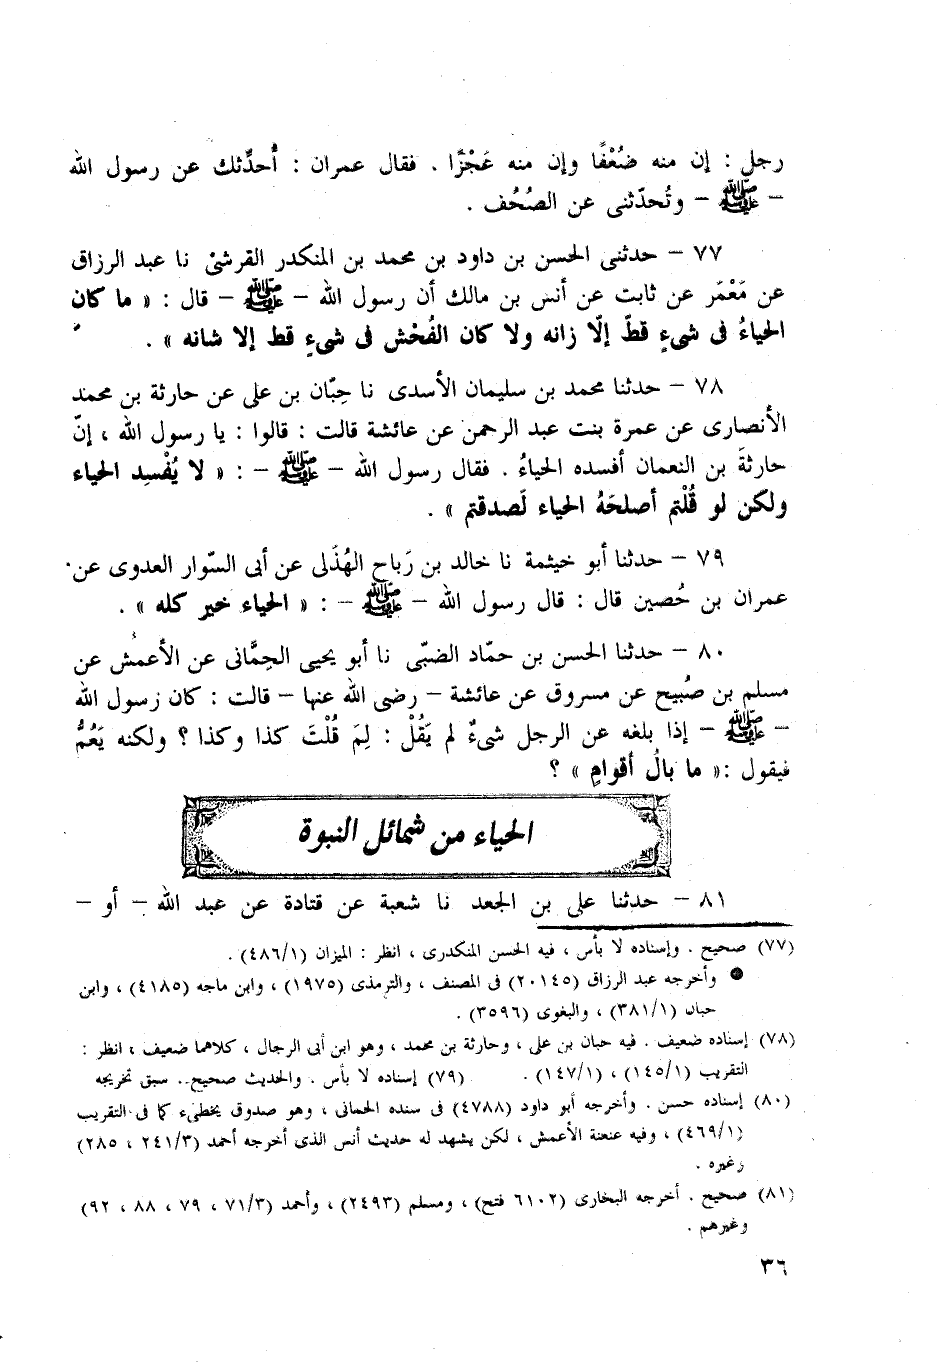 رجل : إن منه ضُعْفًا وإن منه عَجْزًا . فقال عمران : أُحدِّثك عن رسول الله
– ﷺ – وتُحدّثنى عن الصُحُف .
٧٧ – حدثنى الحسن بن داود بن محمد بن المنكدر القرشىْ نا عبد الرزاق
عن مَعْمَر عن ثابت عن أنس بن مالك أن رسول الله – ﷺ – قال : « ما كان
الحياءُ فى شىءٍ قطّ إلّا زانه ولا كان الفُحْش فى شىءٍ قط إلا شانه » .
٧٨ – حدثنا محمد بن سليمان الأسدى نا حِبّان بن على عن حارثة بن محمد
الأنصارى عن عمرة بنت عبد الرحمن عن عائشة قالت : قالوا : يا رسول الله ، إنّ
حارثةَ بن النعمان أفسده الحياءُ . فقال رسول الله – ﷺ – : « لا يُفْسِد الحياء
ولكن لو قُلْتم أصلحَهُ الحياء لَصدقتم » .
٧٩ – حدثنا أبو خيثمة نا خالد بن رَباح الهُذَلى عن أبى السّوار العدوى عن
عمران بن حُصين قال : قال رسول الله – ﷺ – : « الحياء خير كله » .
٨٠ – حدثنا الحسن بن حمّاد الضبّى نا أبو يحيى الحِمَّانى عن الأعمش عن
مسلم بن صُبيح عن مسروق عن عائشة – رضى الله عنها – قالت : كان رسول الله
– ﷺ – إذا بلغه عن الرجل شىءٌ لم يَقُلْ : لِمَ قُلْتَ كذا وكذا ؟ ولكنه يَعُمُّ
فيقول :« ما بالُ أقوامٍ » ؟
الحياء من شمائل النبوة
٨١ – حدثنا على بن الجعد نا شعبة عن قتادة عن عبد الله – أو –
(٧٧) صحيح . وإسناده لا بأس ، فيه الحسن المنكدرى ، انظر : الميزان (٤٨٦/١) .
● وأخرجه عبد الرزاق (٢٠١٤٥) فى المصنف ، والترمذى (١٩٧٥) ، وابن ماجه (٤١٨٥) ، وابن
حبان (٣٨١/١) ، والبغوى (٣٥٩٦) .
(٧٨) إسناده ضعيف . فيه حبان بن على ، وحارثة بن محمد ، وهو ابن أبى الرجال ، كلاهما ضعيف ، انظر :
التقريب (١٤٥/١) ، (١٤٧/١) . (٧٩) إسناده لا بأس . والحديث صحيح.. سبق تخريجه
(٨٠) إسناده حسن . وأخرجه أبو داود (٤٧٨٨) فى سنده الحمانى ، وهو صدوق يخطىء كما فى التقريب
(٤٦٩/١) ، وفيه عنعنة الأعمش ، لكن يشهد له حديث أنس الذى أخرجه أحمد (٢٤١/٣ ، ٢٨٥)
وغيره .
(٨١) صحيح . أخرجه البخارى (٦١٠٢ فتح) ، ومسلم (٢٤٩٣) ، وأحمد (٧١/٣ ، ٧٩ ، ٨٨ ، ٩٢)
وغيرهم .
٣٦